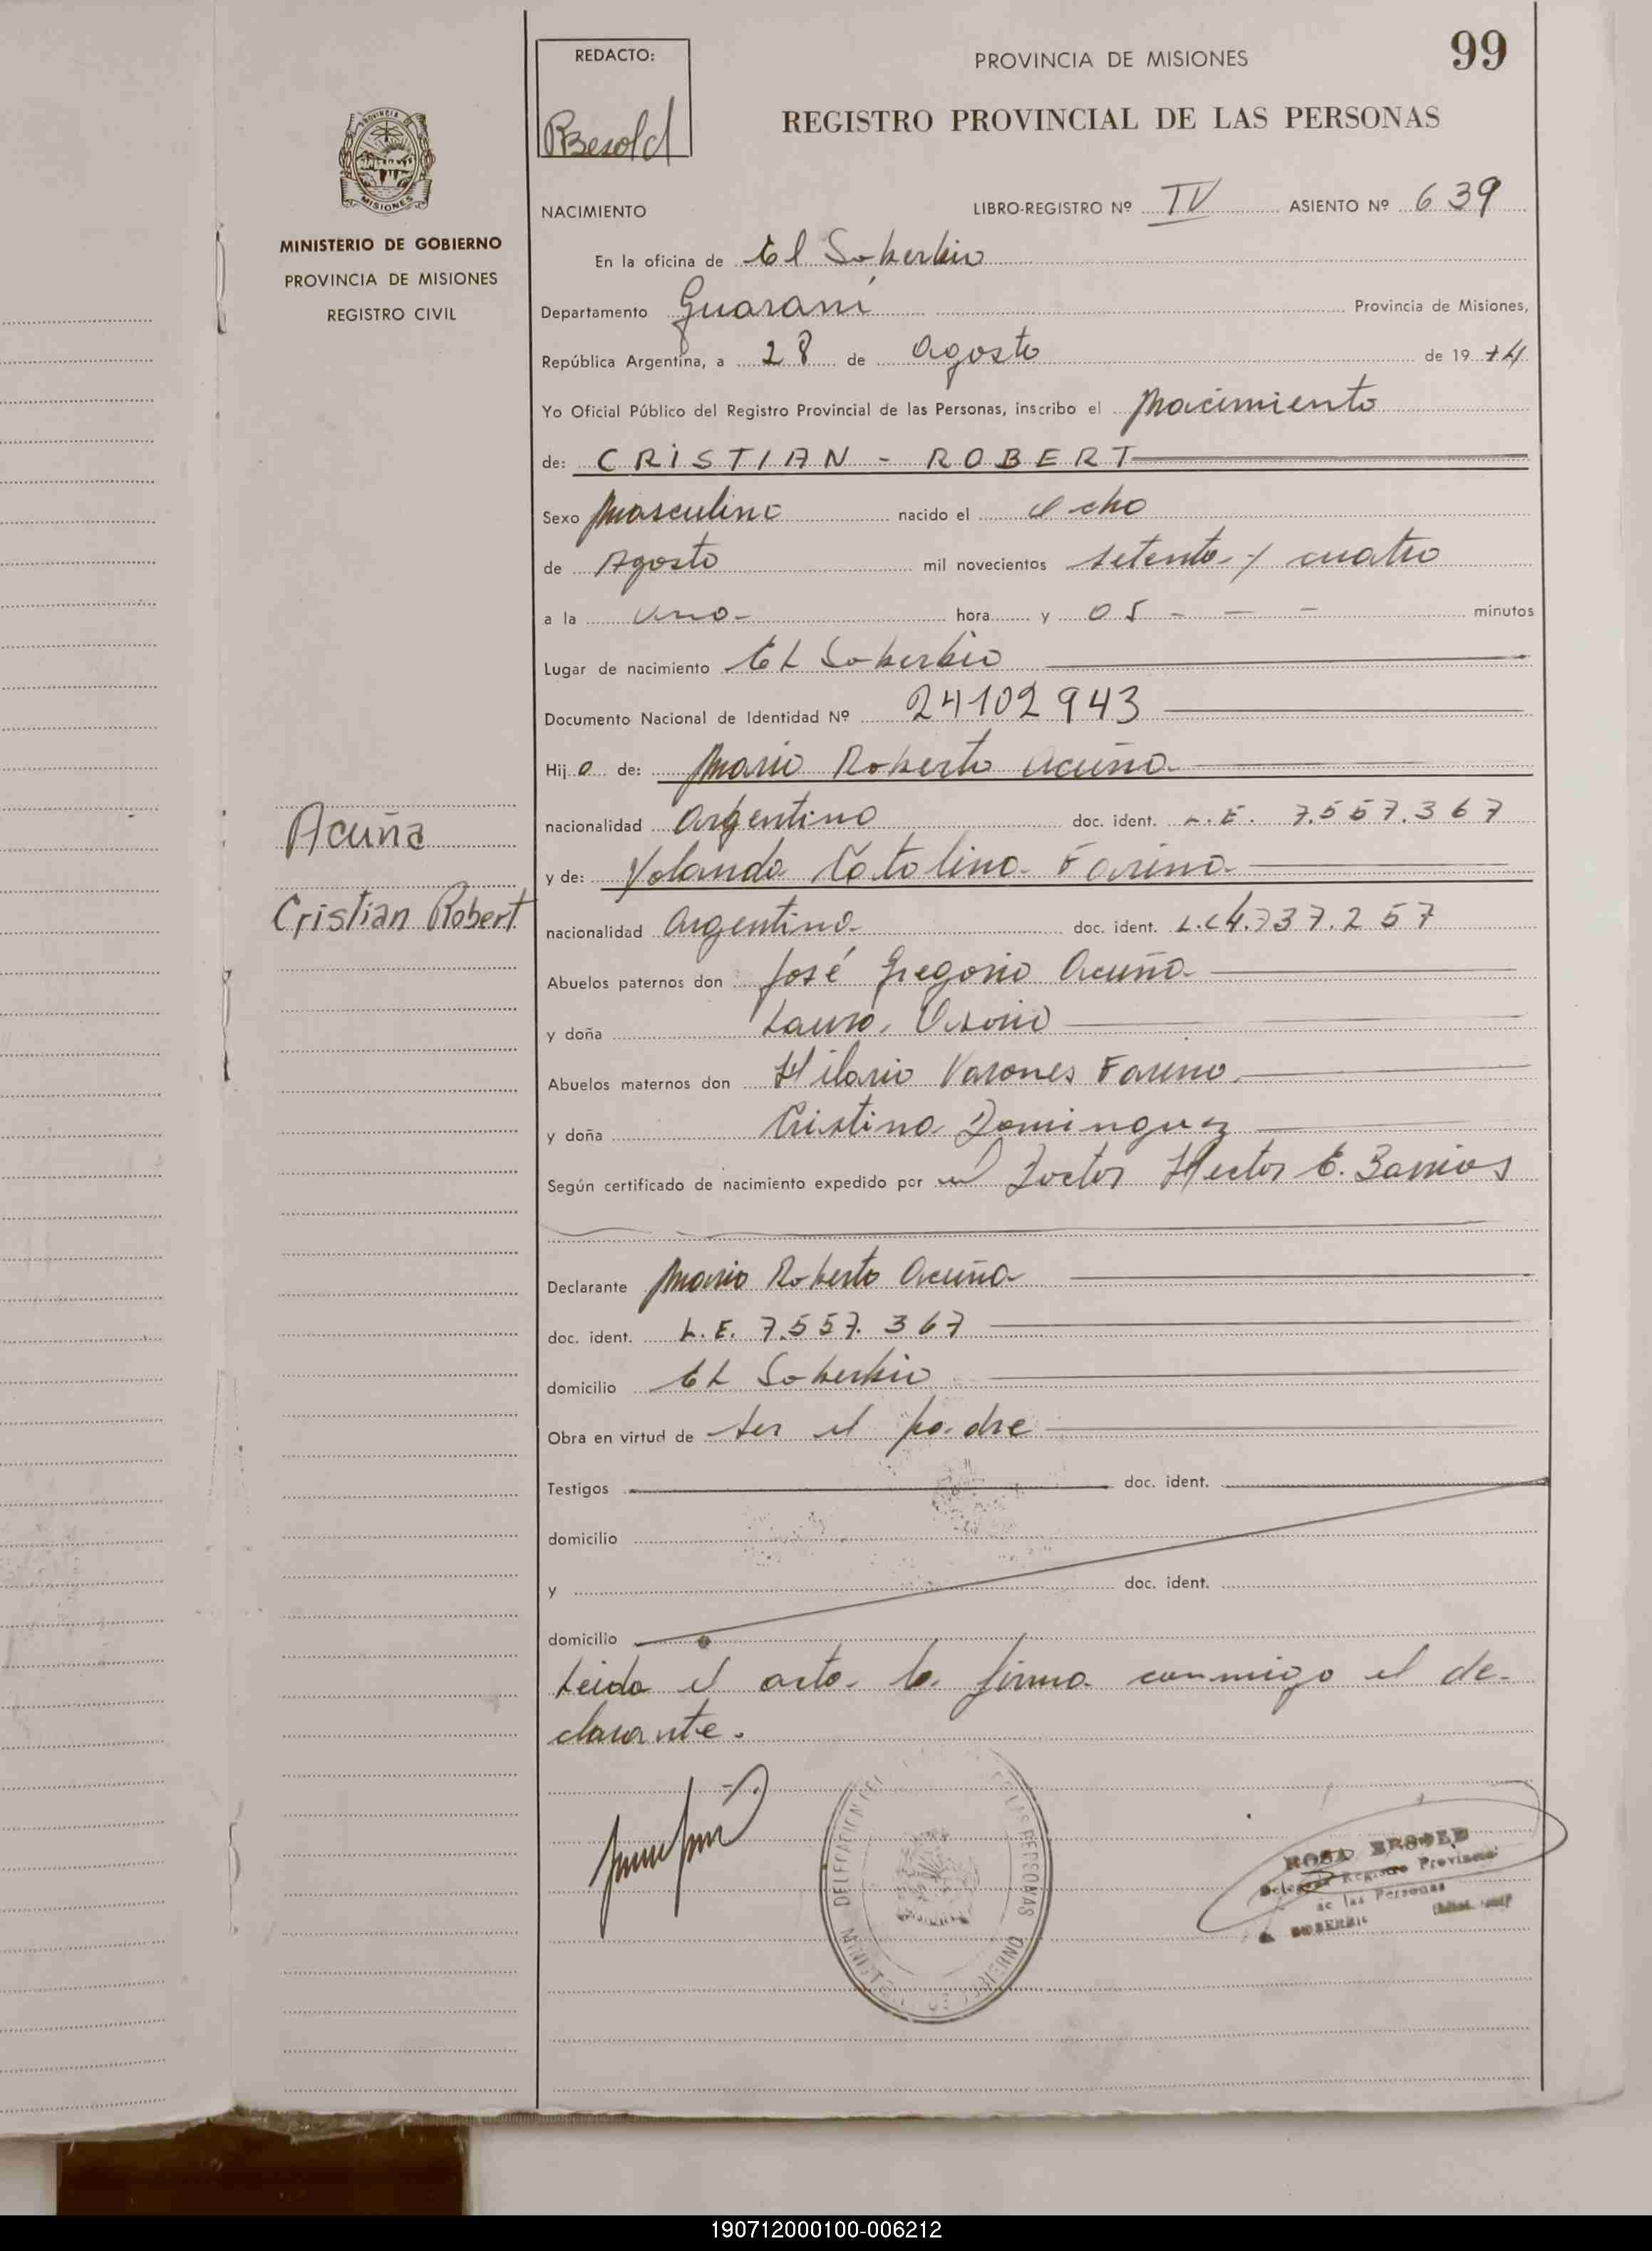 99
REDACTO:
PBesold
PROVINCIA DE MISIONES
REGISTRO PROVINCIAL DE LAS PERSONAS
MINISTERIO DE GOBIERNO
PROVINCIA DE MISIONES
REGISTRO CIVIL
NACIMIENTO LIBRO-REGISTRO Nº IV ASIENTO Nº 639
En la oficina de El Soberbio
Departamento Guaraní Provincia de Misiones,
República Argentina, a 28 de Agosto de 19 74
Yo Oficial Público del Registro Provincial de las Personas, inscribo el Nacimiento
de: CRISTIAN - ROBERT
Sexo Masculino nacido el Ocho
de Agosto mil novecientos setenta y cuatro
a la Una hora y 05 - - - minutos
Lugar de nacimiento El Soberbio
Documento Nacional de Identidad Nº 24102943
Hij o de: Mario Roberto Acuña
Acuña
Cristian Robert
nacionalidad Argentino doc. ident. L.E. 7.557.367
y de: Yolanda Catalina Farina
nacionalidad Argentina doc. ident. L.C 4.737.257
Abuelos paternos don José Gregorio Acuña
y doña Laura Osorio
Abuelos maternos don Hilario Farino
y doña Cristina Dominguez
Según certificado de nacimiento expedido por el Doctor Hector E. Barrios
Declarante Mario Roberto Acuña
doc. ident. L.E. 7.557.367
domicilio El Soberbio
Obra en virtud de ser el padre
Testigos doc. ident.
domicilio
y doc. ident.
domicilio
Leida el acta la firma conmigo el de-
clarante.
DELEGACION DEL DE LAS PERSONAS
MINISTERIO DE GOBIERNO
ROSA
Delegada Registro Provincial
de las Personas
SOBERBIO
190712000100-006212